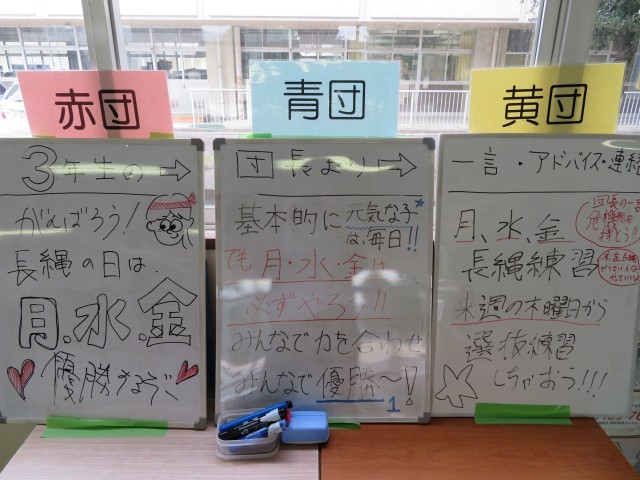 赤団
3年生の→
がんばろう!
長縄の日は、
月、水、金
優勝するぞ
青団
団長より→
基本的に元気な子
は、毎日!!
でも月・水・金は
必ずやろう!!
みんなで力を合わせ
みんなで優勝〜!
1
黄団
一言・アドバイス・連絡
団長の一言
危機感を
持とう!!
月、水、金
長縄練習
来週の木曜日から
選抜練習
しちゃおう!!!